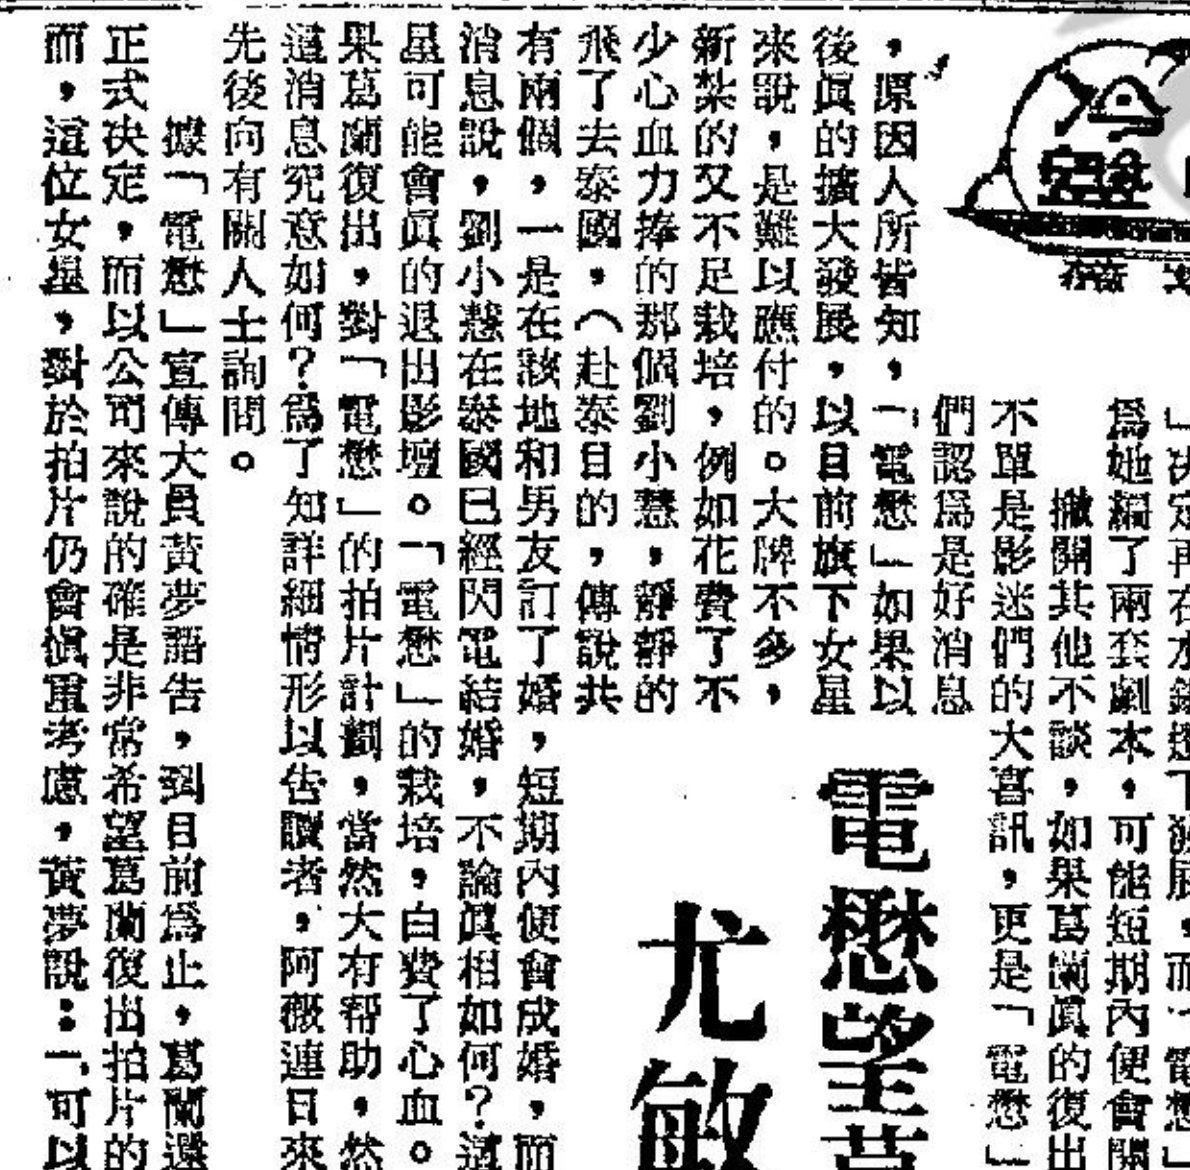 」决定再在水銀燈下發展,而「電懋」
爲她編了兩套劇本,可能短期內便會開
撇開其他不談,如果葛蘭眞的復出
不單是影迷們的大喜訊,更是「電懋」
們認爲是好消息
,原因人所皆知,「電懋」如果以
後眞的擴大發展,以目前旗下女星
來說,是難以應付的。大牌不多,
新紮的又不足栽培,例如花費了不
少心血力捧的那個劉小慧,靜靜的
飛了去泰國,(赴泰目的,傳說共
電懋望
尤敏
有兩個,一是在該地和男友訂了婚,短期內便會成婚,而
消息說,劉小慧在泰國已經閃電結婚,不論眞相如何?這
星可能會眞的退出影壇。「電懋」的栽培,白費了心血。
果葛蘭復出,對「電懋」的拍片計劃,當然大有帮助,然
這消息究意如何?爲了知詳細情形以告讀者,阿薇連日來
先後向有關人士詢問。
據「電懋」宣傳大員黃夢語告,到目前爲止,葛蘭還
正式决定,而以公司來說的確是非常希望葛蘭復出拍片的
而,這位女星,對於拍片仍會愼重考慮,黃夢說:「可以